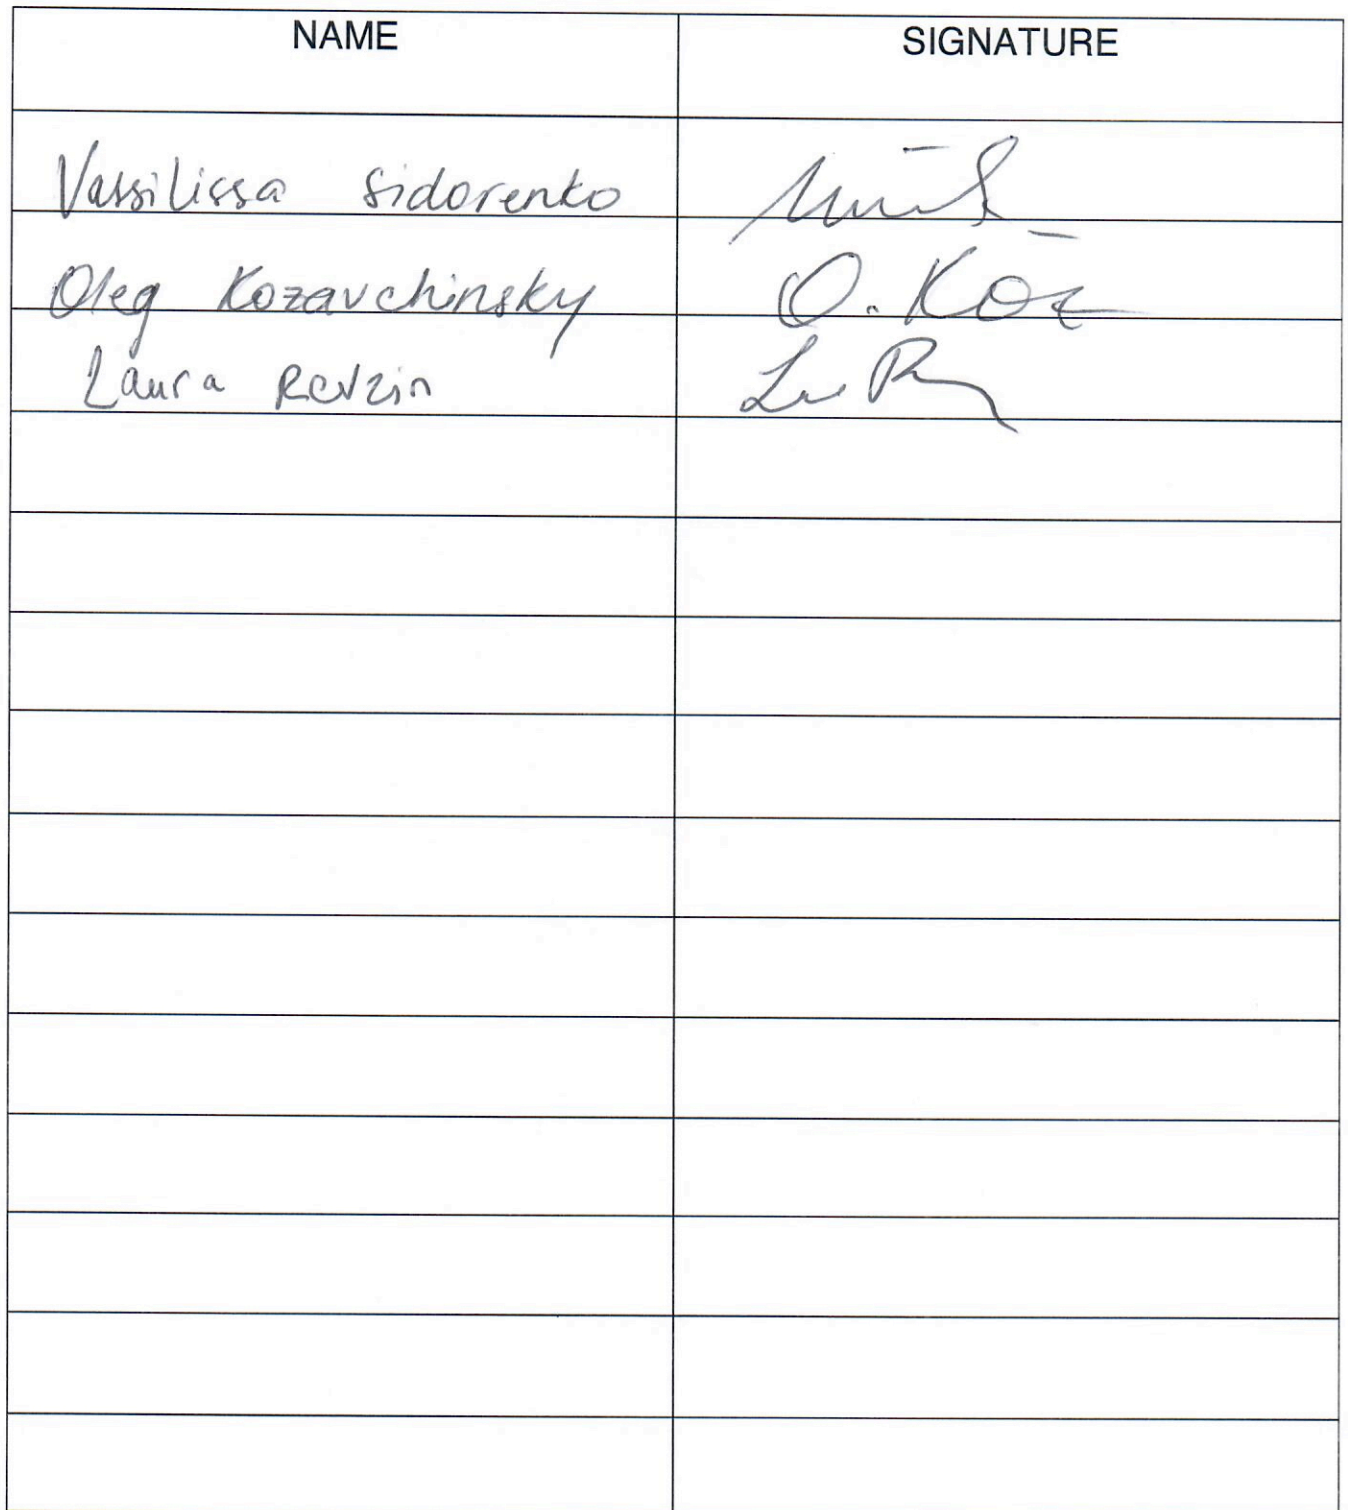 NAME SIGNATURE
Vassilissa Sidorenko
Oleg Kozavchinsky O. Koz
Laura Revzin